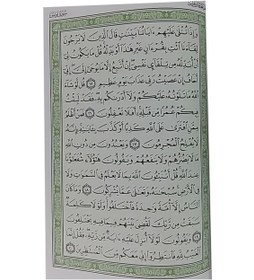 وَإِذَا تُتْلَىٰ عَلَيْهِمْ ءَايَاتُنَا بَيِّنَٰتٍ قَالَ ٱلَّذِينَ لَا يَرْجُونَ
لِقَآءَنَا ٱئْتِ بِقُرْءَانٍ غَيْرِ هَٰذَآ أَوْ بَدِّلْهُ قُلْ مَا يَكُونُ لِىٓ
أَنْ أُبَدِّلَهُۥ مِن تِلْقَآئِ نَفْسِىٓ إِنْ أَتَّبِعُ إِلَّا مَا يُوحَىٰٓ إِلَىَّ إِنِّىٓ
أَخَافُ إِنْ عَصَيْتُ رَبِّى عَذَابَ يَوْمٍ عَظِيمٍ ١٥ قُل لَّوْ شَآءَ
ٱللَّهُ مَا تَلَوْتُهُۥ عَلَيْكُمْ وَلَآ أَدْرَىٰكُم بِهِۦ فَقَدْ لَبِثْتُ
فِيكُمْ عُمُرًا مِّن قَبْلِهِۦٓ أَفَلَا تَعْقِلُونَ ١٦ فَمَنْ أَظْلَمُ
مِمَّنِ ٱفْتَرَىٰ عَلَى ٱللَّهِ كَذِبًا أَوْ كَذَّبَ بِـَٔايَٰتِهِۦٓ إِنَّهُۥ
لَا يُفْلِحُ ٱلْمُجْرِمُونَ ١٧ وَيَعْبُدُونَ مِن دُونِ ٱللَّهِ
مَا لَا يَضُرُّهُمْ وَلَا يَنفَعُهُمْ وَيَقُولُونَ هَٰٓؤُلَآءِ شُفَعَٰٓؤُنَا
عِندَ ٱللَّهِ قُلْ أَتُنَبِّـُٔونَ ٱللَّهَ بِمَا لَا يَعْلَمُ فِى ٱلسَّمَٰوَٰتِ وَلَا
فِى ٱلْأَرْضِ سُبْحَٰنَهُۥ وَتَعَٰلَىٰ عَمَّا يُشْرِكُونَ ١٨ وَمَا كَانَ
ٱلنَّاسُ إِلَّآ أُمَّةً وَٰحِدَةً فَٱخْتَلَفُوا۟ وَلَوْلَا كَلِمَةٌ
سَبَقَتْ مِن رَّبِّكَ لَقُضِىَ بَيْنَهُمْ فِيمَا فِيهِ يَخْتَلِفُونَ
١٩ وَيَقُولُونَ لَوْلَآ أُنزِلَ عَلَيْهِ ءَايَةٌ مِّن رَّبِّهِۦ فَقُلْ إِنَّمَا
ٱلْغَيْبُ لِلَّهِ فَٱنتَظِرُوٓا۟ إِنِّى مَعَكُم مِّنَ ٱلْمُنتَظِرِينَ ٢٠